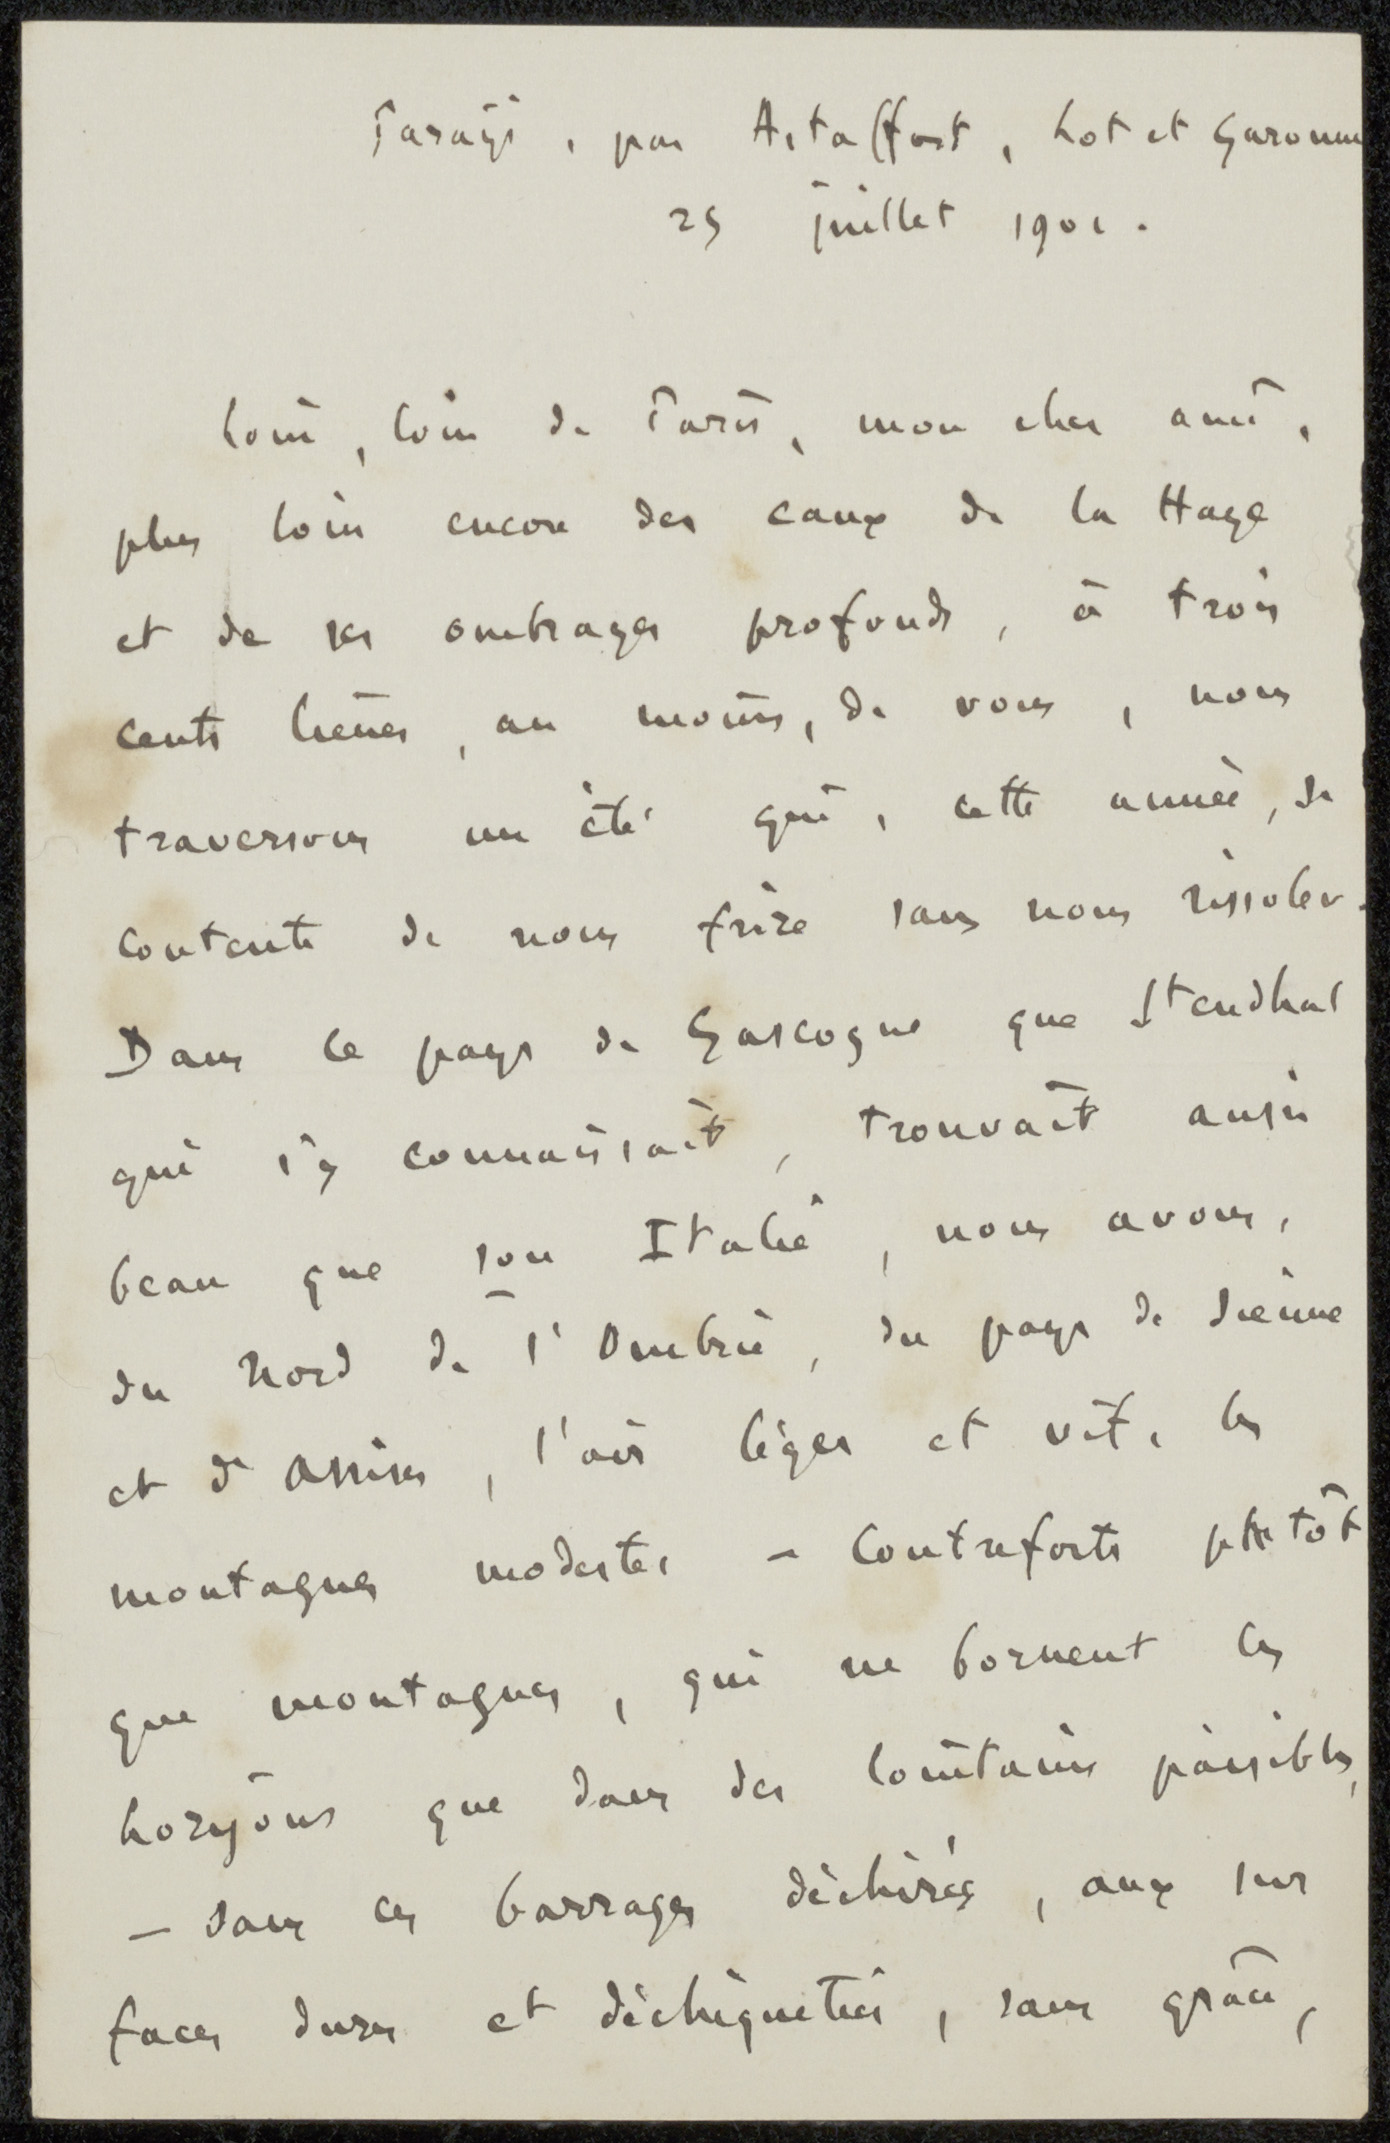 Parays, par Astaffort, Lot et Garonne
25 juillet 1901.
Loin, loin de Paris, mon cher ami,
plus loin encore des eaux de la Haye
et de ses ombrages profonds, à trois
cents lieues, au moins, de vous, nous
traversons un été qui, cette année, se
contente de nous frire sans nous rissoler.
Dans ce pays de Gascogne que Stendhal
qui s'y connaissait, trouvait aussi
beau que son Italie, nous avons,
du Nord de l'Ombrie, du pays de Sienne
et d'Assises, l'air léger et vif, les
montagnes modestes - contreforts plutôt
que montagnes, qui ne bornent les
horizons que dans des lointains paisibles,
- sans ces barrages déchirés, aux sur
faces dures et déchiquetées, sans grâce,